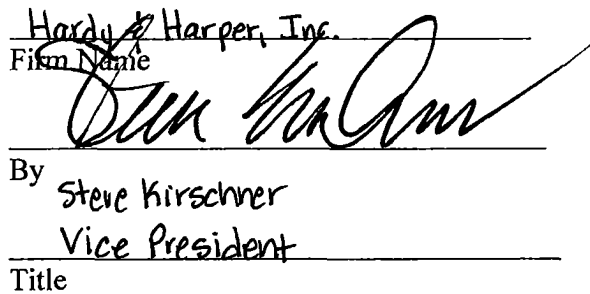 Hardy & Harper, Inc.
Firm Name
By
Steve Kirschner
Vice President
Title